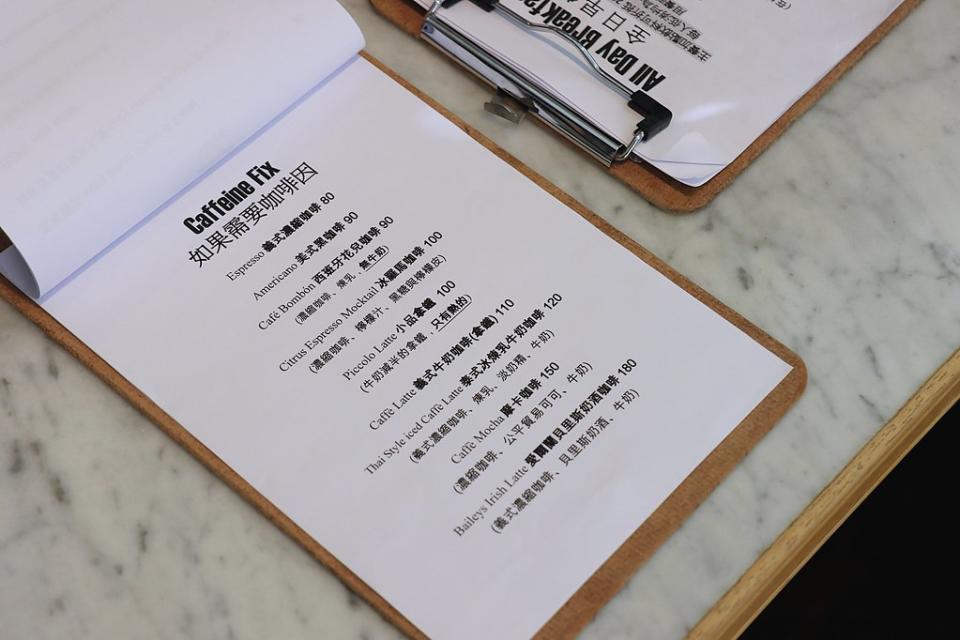 Caffeine Fix
如果需要咖啡因
Espresso 義式濃縮咖啡 80
Americano 美式黑咖啡 90
Café Bombón 西班牙花兒咖啡 90
(濃縮咖啡、煉乳，無牛奶)
Citrus Espresso Mocktail 冰羅馬咖啡 100
(濃縮咖啡、檸檬汁、黑糖與檸檬皮)
Piccolo Latte 小品拿鐵 100
(牛奶減半的拿鐵，只有熱的)
Caffè Latte 義式牛奶咖啡(拿鐵) 110
Thai Style iced Caffè Latte 泰式冰煉乳牛奶咖啡 120
(義式濃縮咖啡、煉乳、淡奶精、牛奶)
Caffè Mocha 摩卡咖啡 150
(濃縮咖啡、公平貿易可可、牛奶)
Baileys Irish Latte 愛爾蘭貝里斯奶酒咖啡 180
(義式濃縮咖啡、貝里斯奶酒、牛奶)
All Day Breakfa
全日早